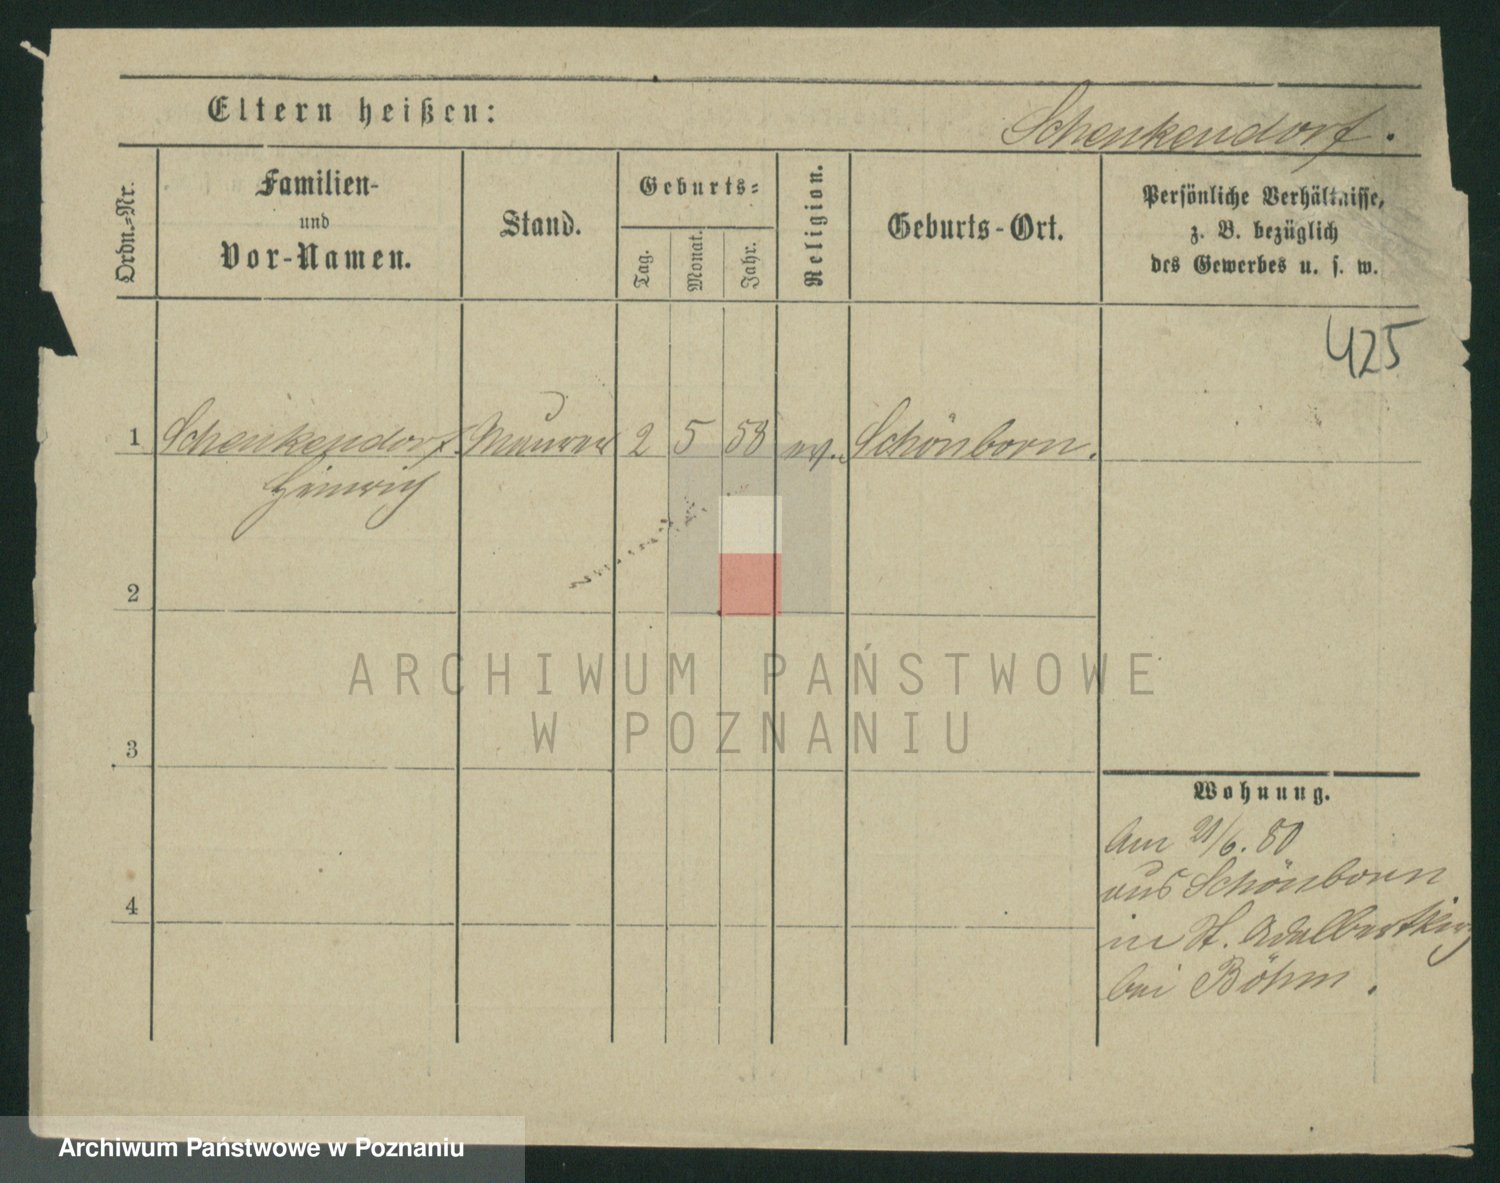 Eltern heißen:
Schenkendorf.
Ordn.=Nr.
Familien-
und
Vor-Namen.
Stand.
Geburts=
Tag.
Monat.
Jahr.
Religion.
Geburts-Ort.
Persönliche Verhältnisse,
z. B. bezüglich
des Gewerbes u. s. w.
425
1 Schenkendorf Maurer 2 5 58 ev. Schönborn.
Heinrich
2
ARCHIWUM PAŃSTWOWE
W POZNANIU
3
Wohnung.
Am 21/6. 80
aus Schönborn
4
in St. Adalbertkirch
bei Böhm.
Archiwum Państwowe w Poznaniu